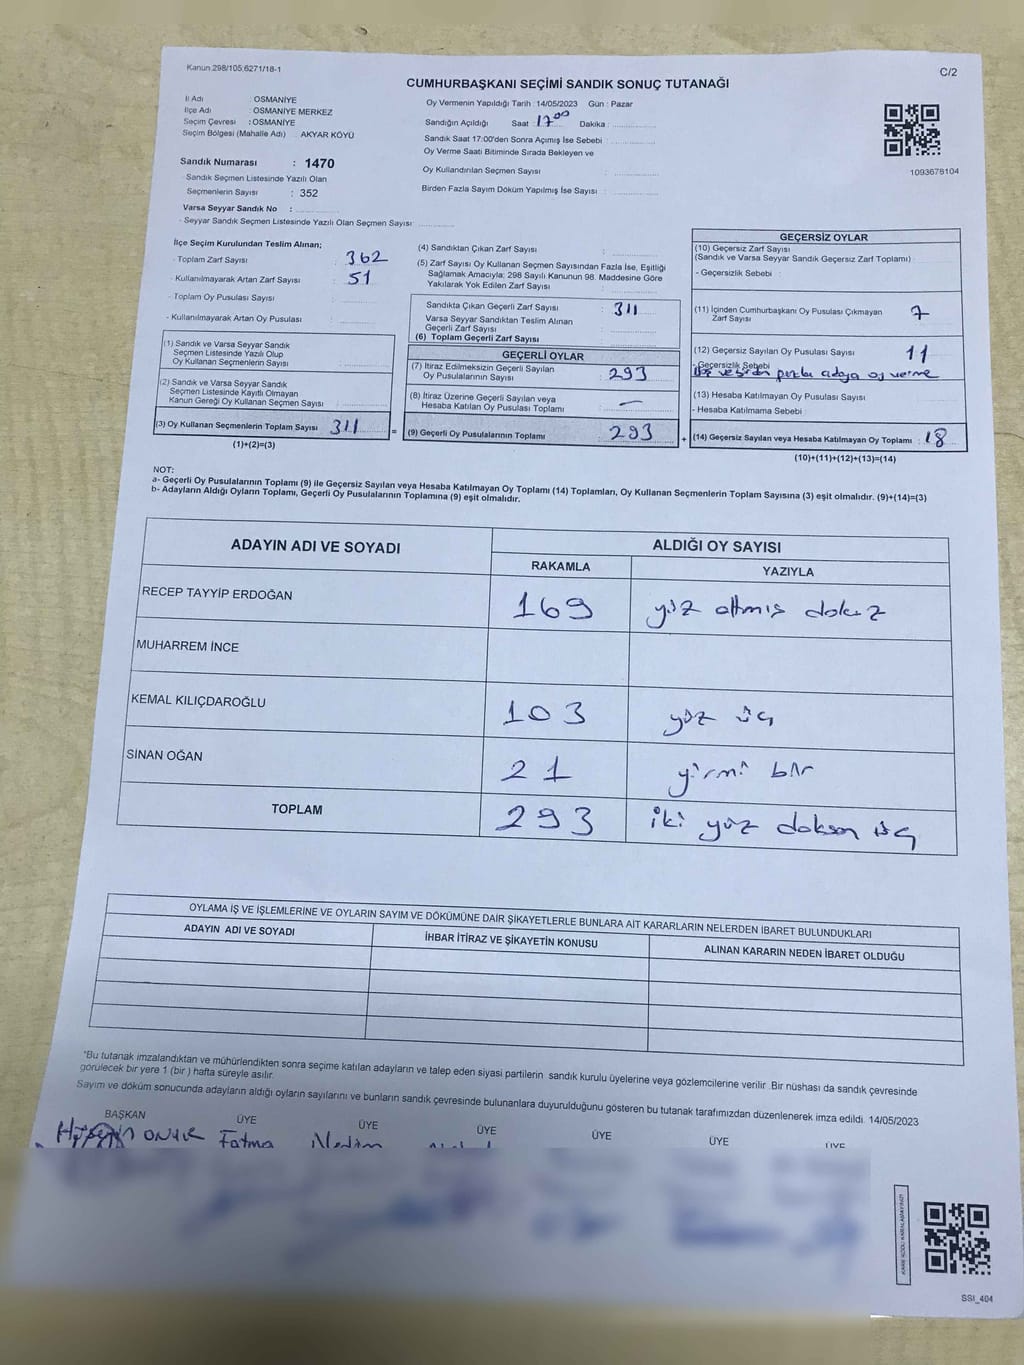 Kanun:298/105:6271/18-1
C/2
CUMHURBAŞKANI SEÇİMİ SANDIK SONUÇ TUTANAĞI
İl Adı : OSMANİYE
İlçe Adı : OSMANİYE MERKEZ
Seçim Çevresi : OSMANİYE
Seçim Bölgesi (Mahalle Adı) : AKYAR KÖYÜ
Sandık Numarası : 1470
Sandık Seçmen Listesinde Yazılı Olan
Seçmenlerin Sayısı : 352
Varsa Seyyar Sandık No :
- Seyyar Sandık Seçmen Listesinde Yazılı Olan Seçmen Sayısı:
Oy Vermenin Yapıldığı Tarih :14/05/2023 Gün : Pazar
Sandığın Açıldığı Saat : 17 00 Dakika :
Sandık Saat 17:00'den Sonra Açılmış İse Sebebi :
Oy Verme Saati Bitiminde Sırada Bekleyen ve
Oy Kullandırılan Seçmen Sayısı :
Birden Fazla Sayım Döküm Yapılmış İse Sayısı :
1093678104
İlçe Seçim Kurulundan Teslim Alınan;
- Toplam Zarf Sayısı : 362
- Kullanılmayarak Artan Zarf Sayısı : 51
- Toplam Oy Pusulası Sayısı :
- Kullanılmayarak Artan Oy Pusulası :
(1) Sandık ve Varsa Seyyar Sandık
Seçmen Listesinde Yazılı Olup
Oy Kullanan Seçmenlerin Sayısı :
(2) Sandık ve Varsa Seyyar Sandık
Seçmen Listesinde Kayıtlı Olmayan
Kanun Gereği Oy Kullanan Seçmen Sayısı :
(3) Oy Kullanan Seçmenlerin Toplam Sayısı : 311
(1)+(2)=(3)
(4) Sandıktan Çıkan Zarf Sayısı :
(5) Zarf Sayısı Oy Kullanan Seçmen Sayısından Fazla İse, Eşitliği
Sağlamak Amacıyla; 298 Sayılı Kanunun 98. Maddesine Göre
Yakılarak Yok Edilen Zarf Sayısı :
Sandıkta Çıkan Geçerli Zarf Sayısı : 311
Varsa Seyyar Sandıktan Teslim Alınan
Geçerli Zarf Sayısı :
(6) Toplam Geçerli Zarf Sayısı :
GEÇERLİ OYLAR
(7) İtiraz Edilmeksizin Geçerli Sayılan
Oy Pusulalarının Sayısı : 293
(8) İtiraz Üzerine Geçerli Sayılan veya
Hesaba Katılan Oy Pusulası Toplamı : —
= (9) Geçerli Oy Pusulalarının Toplamı : 293
GEÇERSİZ OYLAR
(10) Geçersiz Zarf Sayısı
(Sandık ve Varsa Seyyar Sandık Geçersiz Zarf Toplamı) :
- Geçersizlik Sebebi :
(11) İçinden Cumhurbaşkanı Oy Pusulası Çıkmayan
Zarf Sayısı : 7
(12) Geçersiz Sayılan Oy Pusulası Sayısı : 11
- Geçersizlik Sebebi
ve birden fazla adaya oy verme
(13) Hesaba Katılmayan Oy Pusulası Sayısı :
- Hesaba Katılmama Sebebi :
+ (14) Geçersiz Sayılan veya Hesaba Katılmayan Oy Toplamı : 18
(10)+(11)+(12)+(13)=(14)
NOT:
a- Geçerli Oy Pusulalarının Toplamı (9) ile Geçersiz Sayılan veya Hesaba Katılmayan Oy Toplamı (14) Toplamları, Oy Kullanan Seçmenlerin Toplam Sayısına (3) eşit olmalıdır. (9)+(14)=(3)
b- Adayların Aldığı Oyların Toplamı, Geçerli Oy Pusulalarının Toplamına (9) eşit olmalıdır.
ADAYIN ADI VE SOYADI
ALDIĞI OY SAYISI
RAKAMLA
YAZIYLA
RECEP TAYYİP ERDOĞAN 169 yüz altmış dokuz
MUHARREM İNCE
KEMAL KILIÇDAROĞLU 103 yüz üç
SİNAN OĞAN 21 yirmi bir
TOPLAM 293 iki yüz doksan üç
OYLAMA İŞ VE İŞLEMLERİNE VE OYLARIN SAYIM VE DÖKÜMÜNE DAİR ŞİKAYETLERLE BUNLARA AİT KARARLARIN NELERDEN İBARET BULUNDUKLARI
ADAYIN ADI VE SOYADI
İHBAR İTİRAZ VE ŞİKAYETİN KONUSU
ALINAN KARARIN NEDEN İBARET OLDUĞU
"Bu tutanak imzalandıktan ve mühürlendikten sonra seçime katılan adayların ve talep eden siyasi partilerin sandık kurulu üyelerine veya gözlemcilerine verilir. Bir nüshası da sandık çevresinde
görülecek bir yere 1 (bir ) hafta süreyle asılır.
Sayım ve döküm sonucunda adayların aldığı oyların sayılarını ve bunların sandık çevresinde bulunanlara duyurulduğunu gösteren bu tutanak tarafımızdan düzenlenerek imza edildi. 14/05/2023
BAŞKAN ÜYE ÜYE ÜYE ÜYE ÜYE ÜYE
Hüseyin ONUR Fatma Nedim
KARE KODU KARALAMAYINIZ!
SSI_404